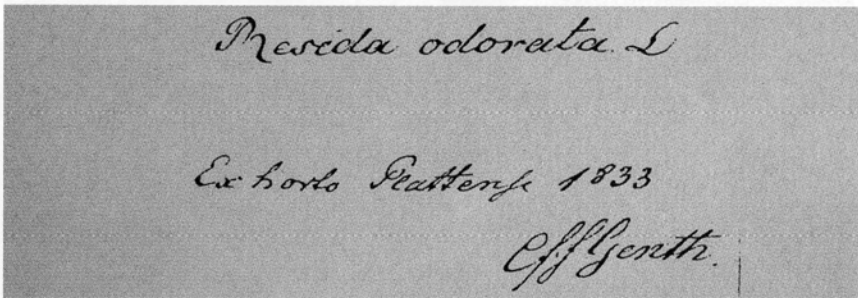 Reseda odorata. L
Ex horto Plattense 1833
CFFGenth.